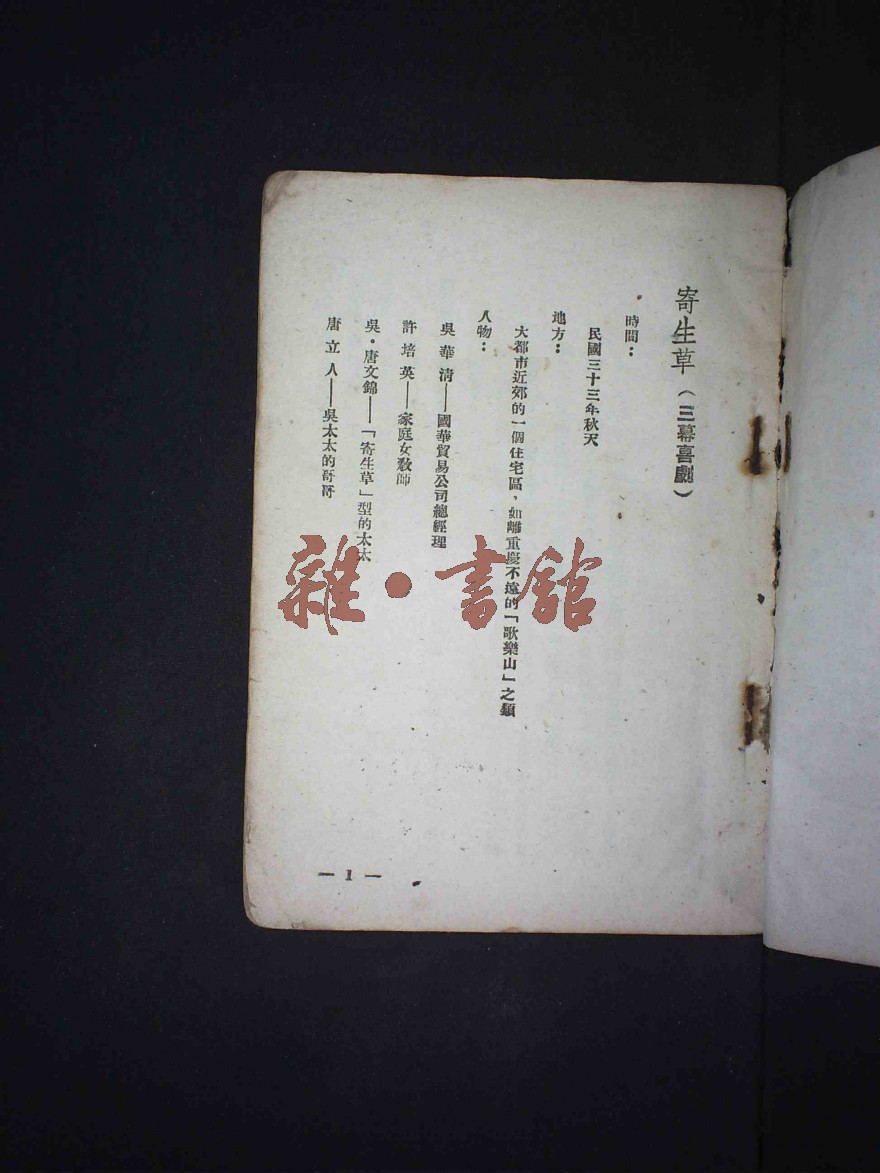 寄生草(三幕喜劇)
時間：
民國三十三年秋天
地方：
大都市近郊的一個住宅區，如離重慶不遠的「歌樂山」之類
人物：
吳華清——國華貿易公司總經理
許培英——家庭女教師
吳·唐文錦——「寄生草」型的太太
唐立人——吳太太的哥哥
— 1 —
雜·書館